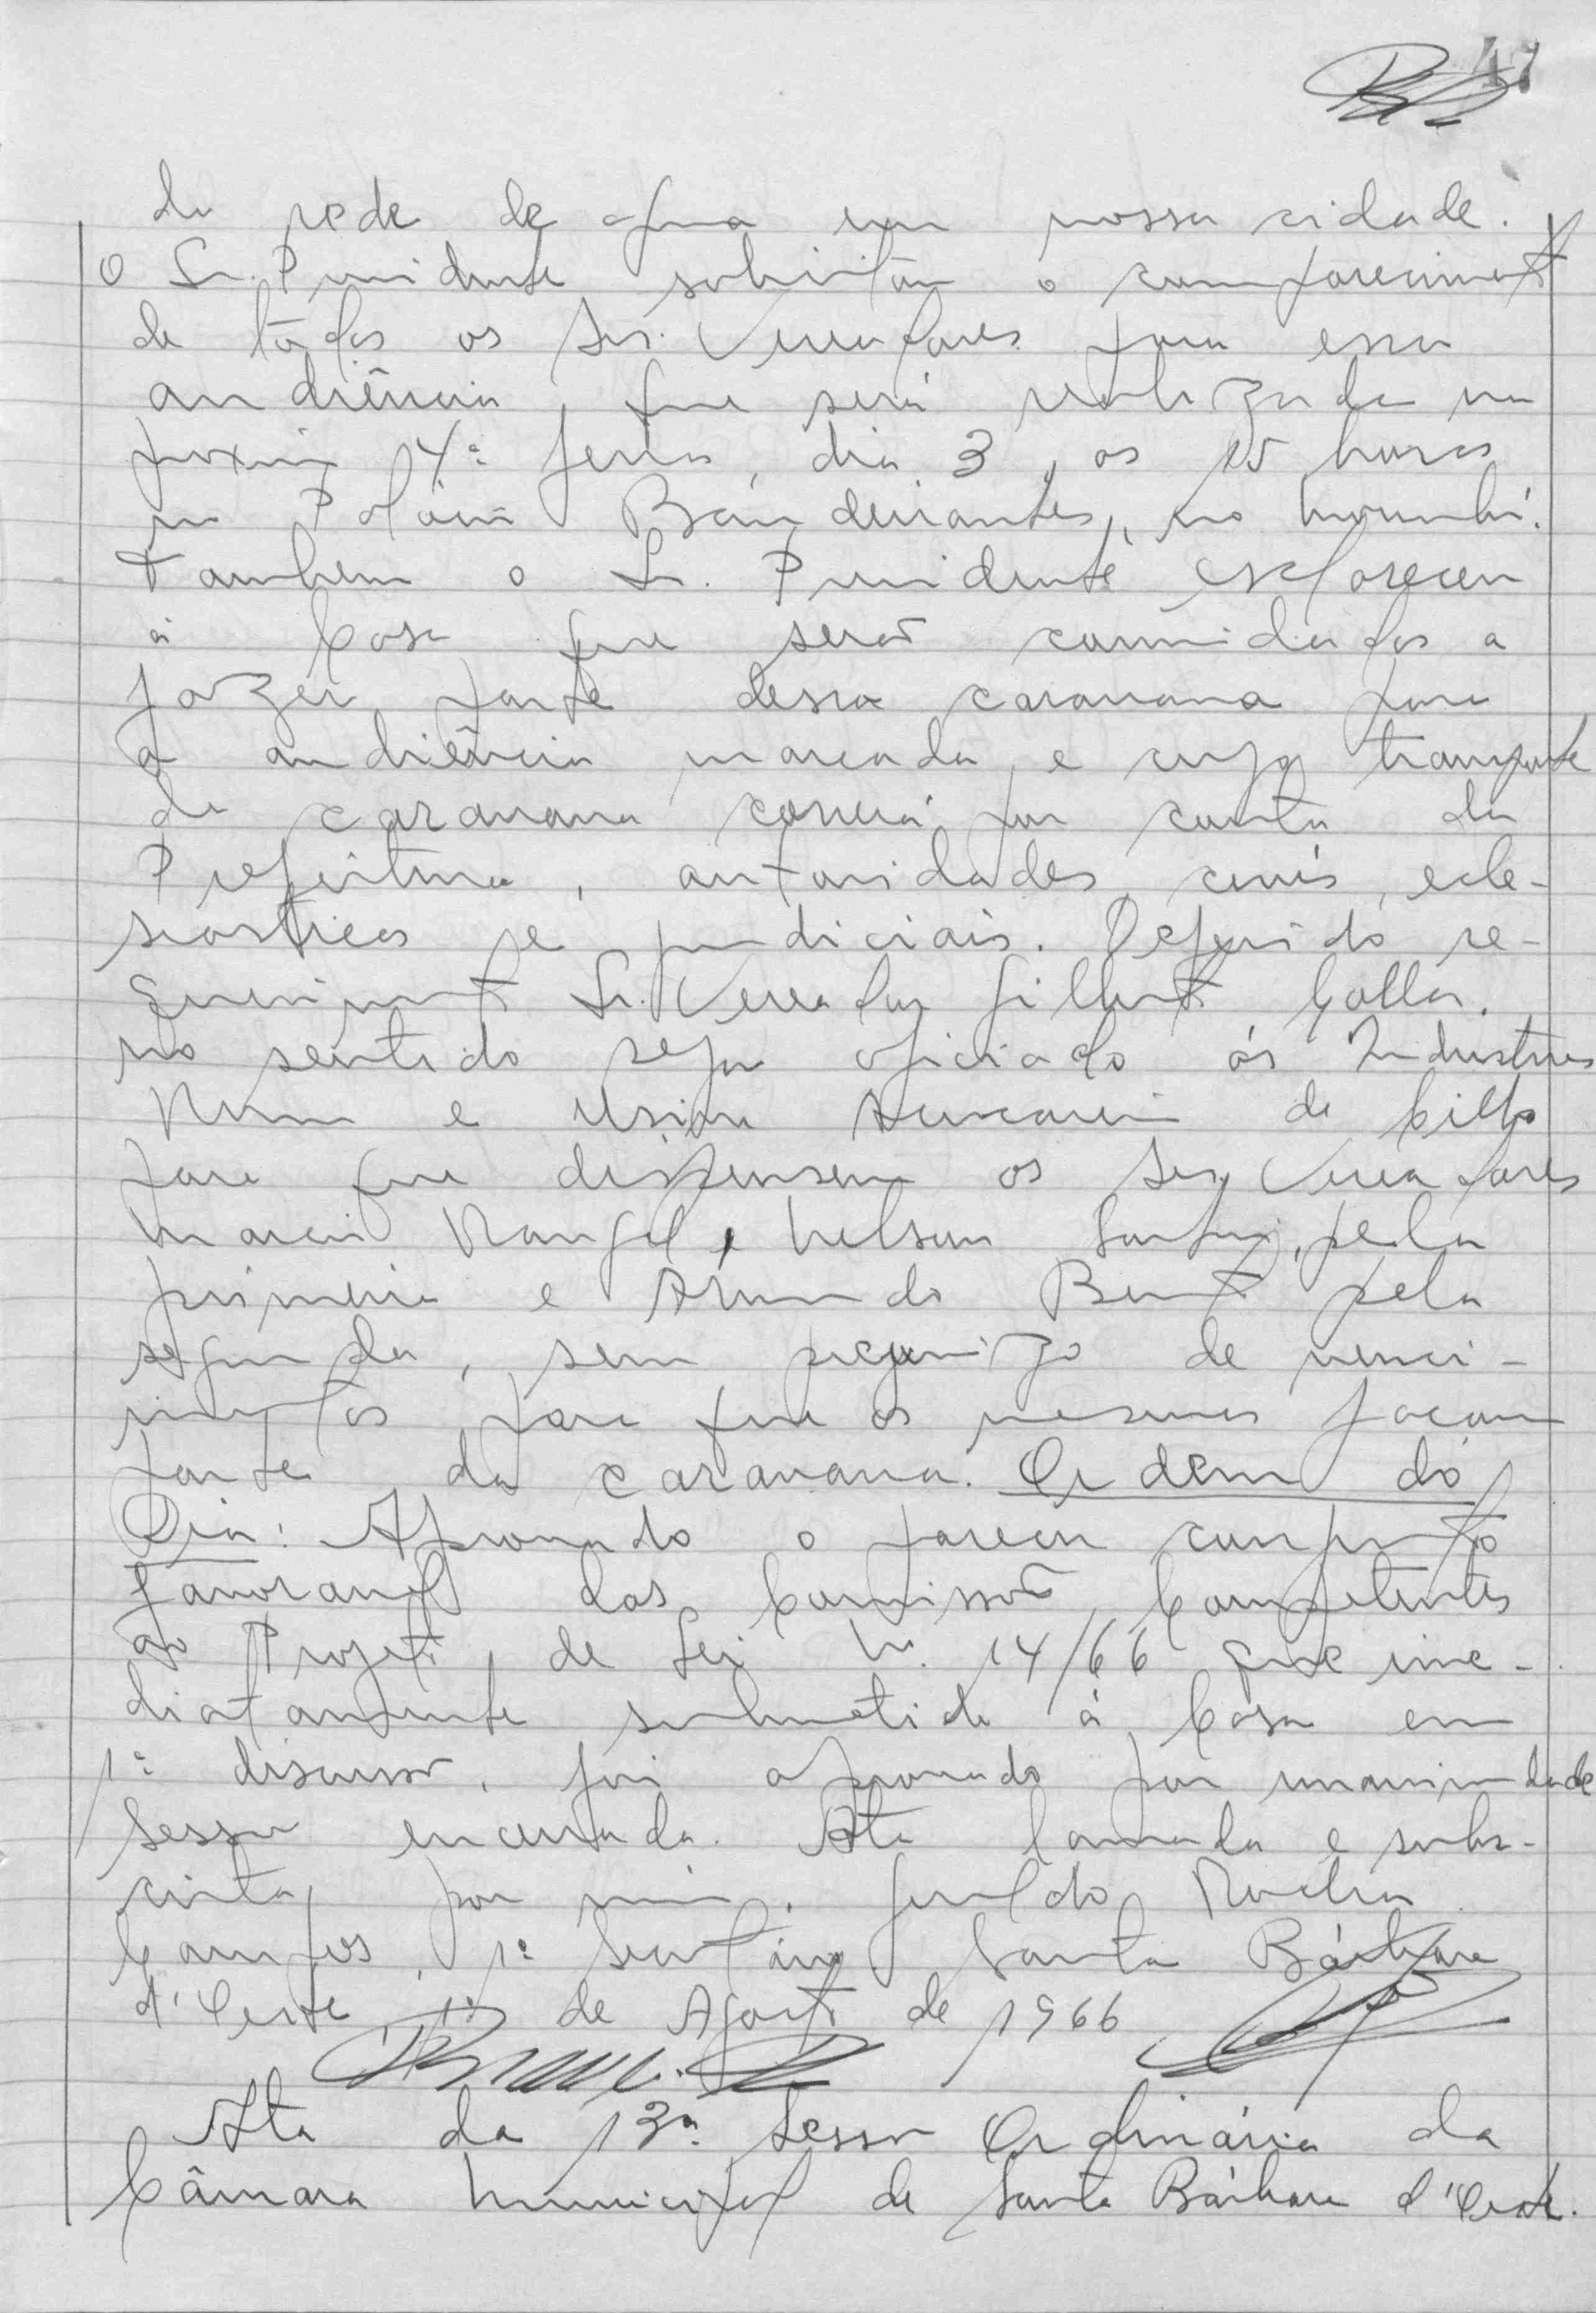 47
da rede de agua em nossa cidade.
O Sr. Presidente solicitou o comparecimento
de todos os Srs. Vereadores para essa
audiência, que será realizada na
proxima 4ª feira, dia 3, as 15 horas
no Palácio Bandeirantes, no Morumbí.
Tambem o Sr. Presidente esclareceu
à Casa que serão convidados a
fazer parte dessa caravana para
a audiência marcada, e cujo transporte
da caravana correrá por conta da
Prefeitura, autoridades civis, ecle-
siasticas e judiciais. Deferido re-
querimento Sr. Vereador Gilberto Calla.
no sentido seja oficiado ás Industrias
e Usina Açucareira de Cillo
para que dispensem os Srs. Vereadores
Marcio Rangel e Nelson pela
primeira e Armindo Bento pela
segunda, sem prejuizo de venci-
mentos, para que os mesmos façam
parte da caravana. Ordem do
Dia: Aprovado o parecer conjunto
favoravel das Comissão Competentes
ao Projeto de Lei N. 14/66 que ime-
diatamente submetido à Casa em
1ª discussão, foi aprovado por unanimidade
Sessão encerrada. Ata lavrada e subs-
crita por mim. Geraldo Rocha
Campos, 1º Secretário Santa Bárbara
d'Oeste 1º de Agosto de 1966
Ata da 13ª Sessão Ordinária da
Câmara Municipal de Santa Bárbara d'Oeste.